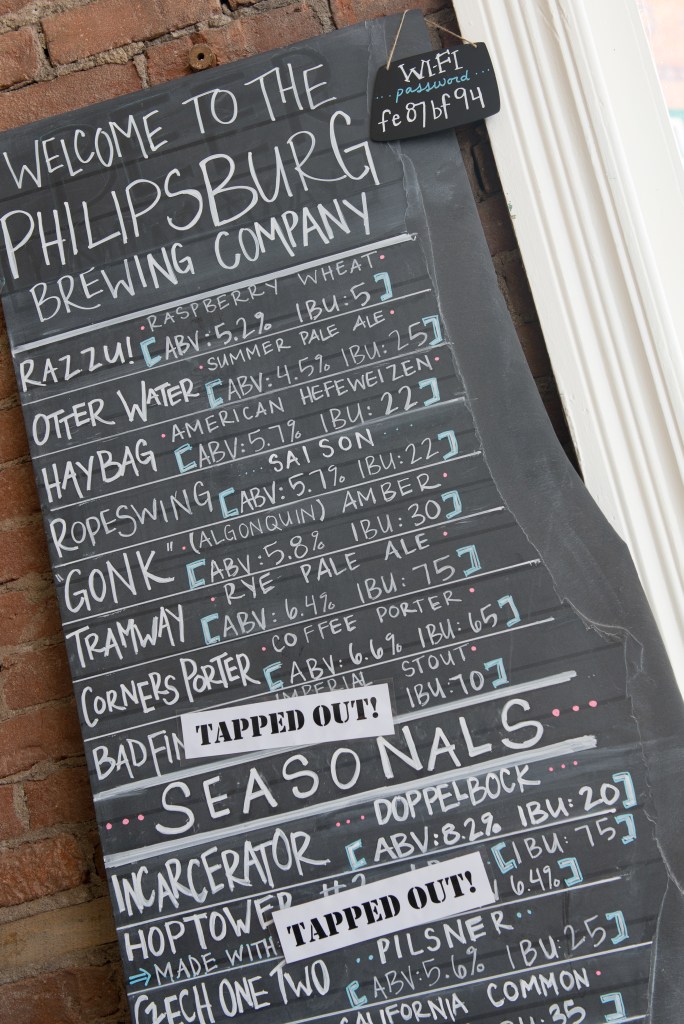 WI-FI
...password...
fe87bf94
WELCOME TO THE
PHILIPSBURG
BREWING COMPANY
RAZZU! · RASPBERRY WHEAT ·
[ABV: 5.2% IBU: 5]
OTTER WATER · SUMMER PALE ALE ·
[ABV: 4.5% IBU: 25]
HAYBAG · AMERICAN HEFEWEIZEN ·
[ABV: 5.7% IBU: 22]
ROPESWING ... SAISON ...
[ABV: 5.7% IBU: 22]
"GONK" · (ALGONQUIN) AMBER ·
[ABV: 5.8% IBU: 30]
TRAMWAY · RYE PALE ALE ·
[ABV: 6.4% IBU: 75]
CORNERS PORTER · COFFEE PORTER ·
[ABV: 6.6% IBU: 65]
IMPERIAL STOUT ·
BADFIN
IBU: 70]
TAPPED OUT!
... SEASONALS ...
INCARCERATOR .... DOPPELBOCK ....
[ABV: 8.2% IBU: 20]
HOPTOWER
[IBU: 75]
6.4%]
TAPPED OUT!
⇒ MADE WITH
CZECH ONE TWO .. PILSNER ..
[ABV: 5.6% IBU: 25]
CALIFORNIA COMMON ·
35]